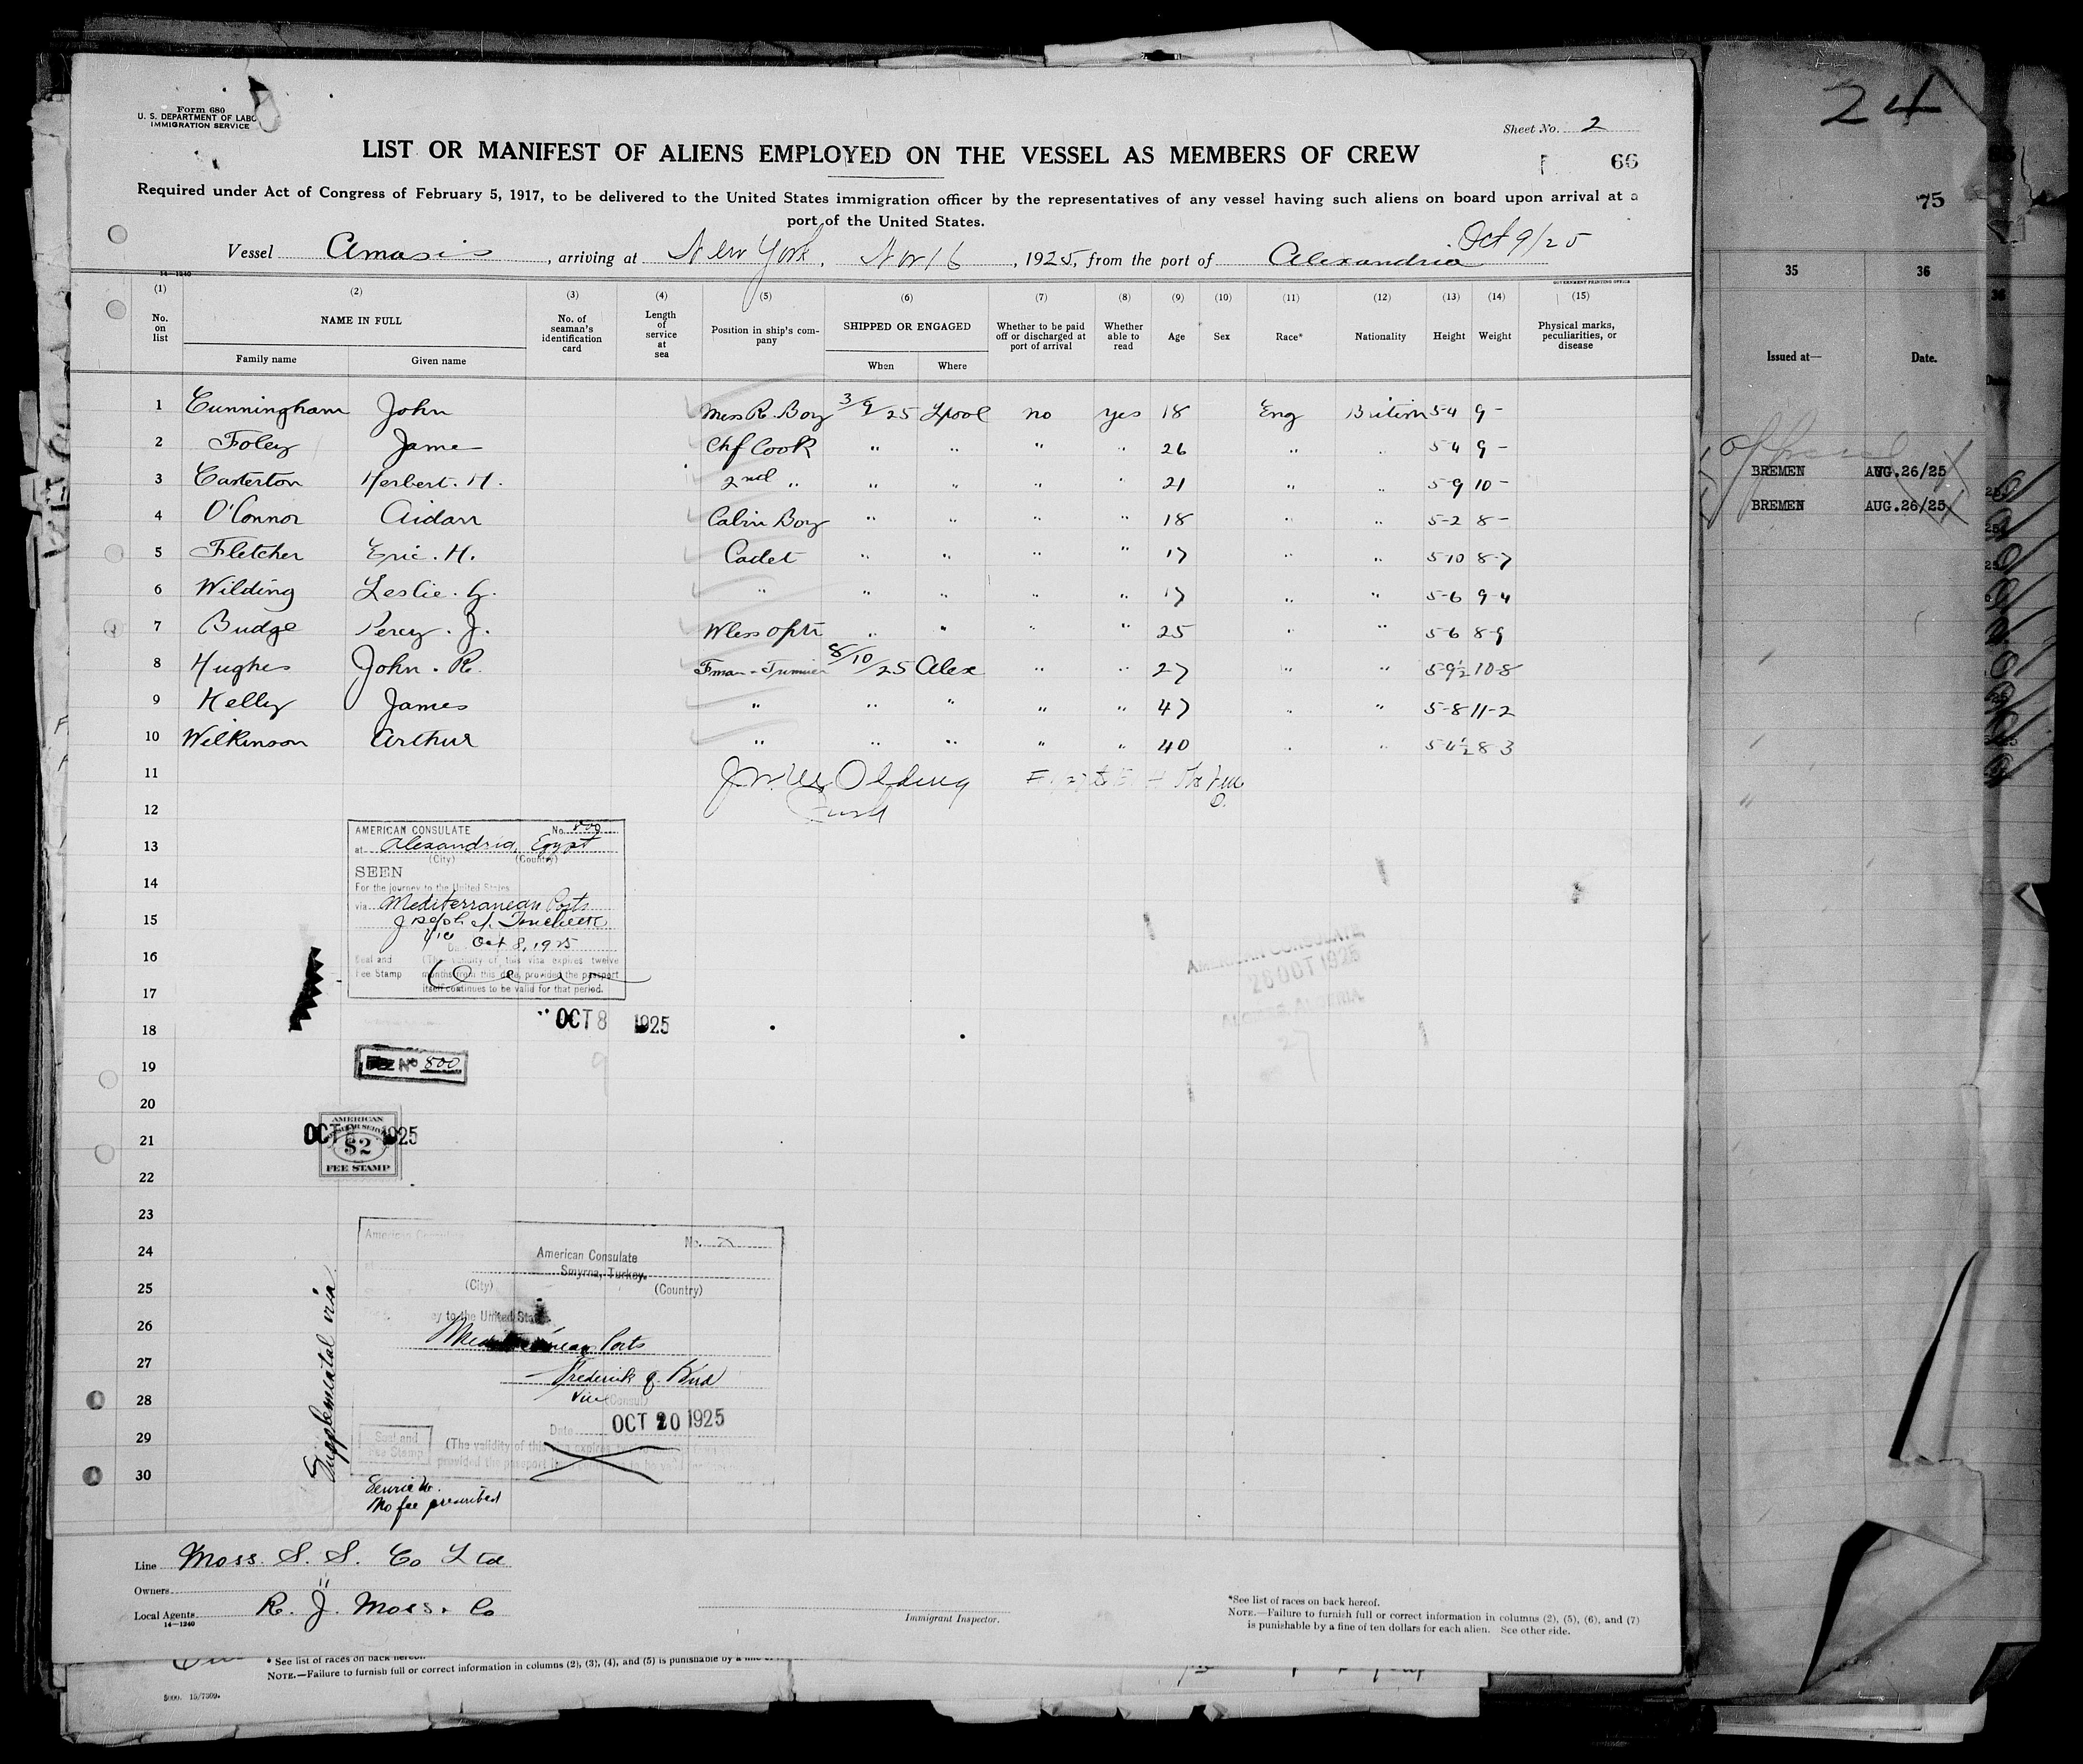 Form 680
U. S. DEPARTMENT OF LABO
IMMIGRATION SERVICE
Sheet No. 2
LIST OR MANIFEST OF ALIENS EMPLOYED ON THE VESSEL AS MEMBERS OF CREW
66
Required under Act of Congress of February 5, 1917, to be delivered to the United States immigration officer by the representatives of any vessel having such aliens on board upon arrival at a
port of the United States.
Vessel Amasis, arriving at New York, Nov 16, 1925, from the port of Alexandria Oct 9/25
14-1240
GOVERNMENT PRINTING OFFICE
(1) (2) (3) (4) (5) (6) (7) (8) (9) (10) (11) (12) (13) (14) (15)
No. on list NAME IN FULL Family name Given name No. of seaman's identification card Length of service at sea Position in ship's company SHIPPED OR ENGAGED When Where Whether to be paid off or discharged at port of arrival Whether able to read Age Sex Race* Nationality Height Weight Physical marks, peculiarities, or disease
1 Cunningham John Mess R. Boy 3/9/25 Lpool no yes 18 Eng British 5-4 9-
2 Foley Jame Chf Cook " " " " 26 " " 5 4 9-
3 Casterton Herbert. H. 2nd " " " " " 21 " " 5-9 10-
4 O'Connor Aidan Cabin Boy " " " " 18 " " 5-2 8-
5 Fletcher Eric. H. Cadet " " " " 17 " " 5-10 8-7
6 Wilding Leslie. G. " " " " " 17 " " 5-6 9-4
7 Budge Percy. J. Wless optr " " " " 25 " " 5-6 8-9
8 Hughes John. R. Fman-Trimmer 8/10/25 Alex " " 27 " " 5-9½ 10-8
9 Kelly James " " " " " 47 " " 5-8 11-2
10 Wilkinson Arthur " " " " " 40 " " 5 4½ 8 3
11 Olding
12
13
14
15
16
17
18
19
20
21
22
23
24
25
26
27
28
29
30
AMERICAN CONSULATE No. 800
at Alexandria, Egypt
(City) (Country)
SEEN
For the journey to the United States
via Mediterranean Ports
Oct 8, 1925
Seal and (The validity of this visa expires twelve
Fee Stamp months from this date, provided the passport
itself continues to be valid for that period.
OCT 8 1925
No 800
AMERICAN
$2
FEE STAMP
OCT 1925
AMERICAN CONSULATE,
26 OCT 1925
ALGIERS, ALGERIA
27
American Consulate No.
American Consulate
Smyrna, Turkey.
(City) (Country)
to the United States
Mediterranean Ports
Frederick J. Bird
Vice (Consul)
Date OCT 20 1925
Seal and
Fee Stamp
(The validity of this visa expires
provided the passport
Supplemental visa
No fee prescribed
Line Moss S. S. Co Ltd
Owners "
Local Agents R. J. Moss. Co
14-1240
Immigrant Inspector.
*See list of races on back hereof.
NOTE.—Failure to furnish full or correct information in columns (2), (5), (6), and (7)
is punishable by a fine of ten dollars for each alien. See other side.
* See list of races on back hereof.
NOTE.—Failure to furnish full or correct information in columns (2), (3), (4), and (5) is punishable by a
24
75
35 36
Issued at— Date.
BREMEN AUG.26/25
BREMEN AUG.26/25